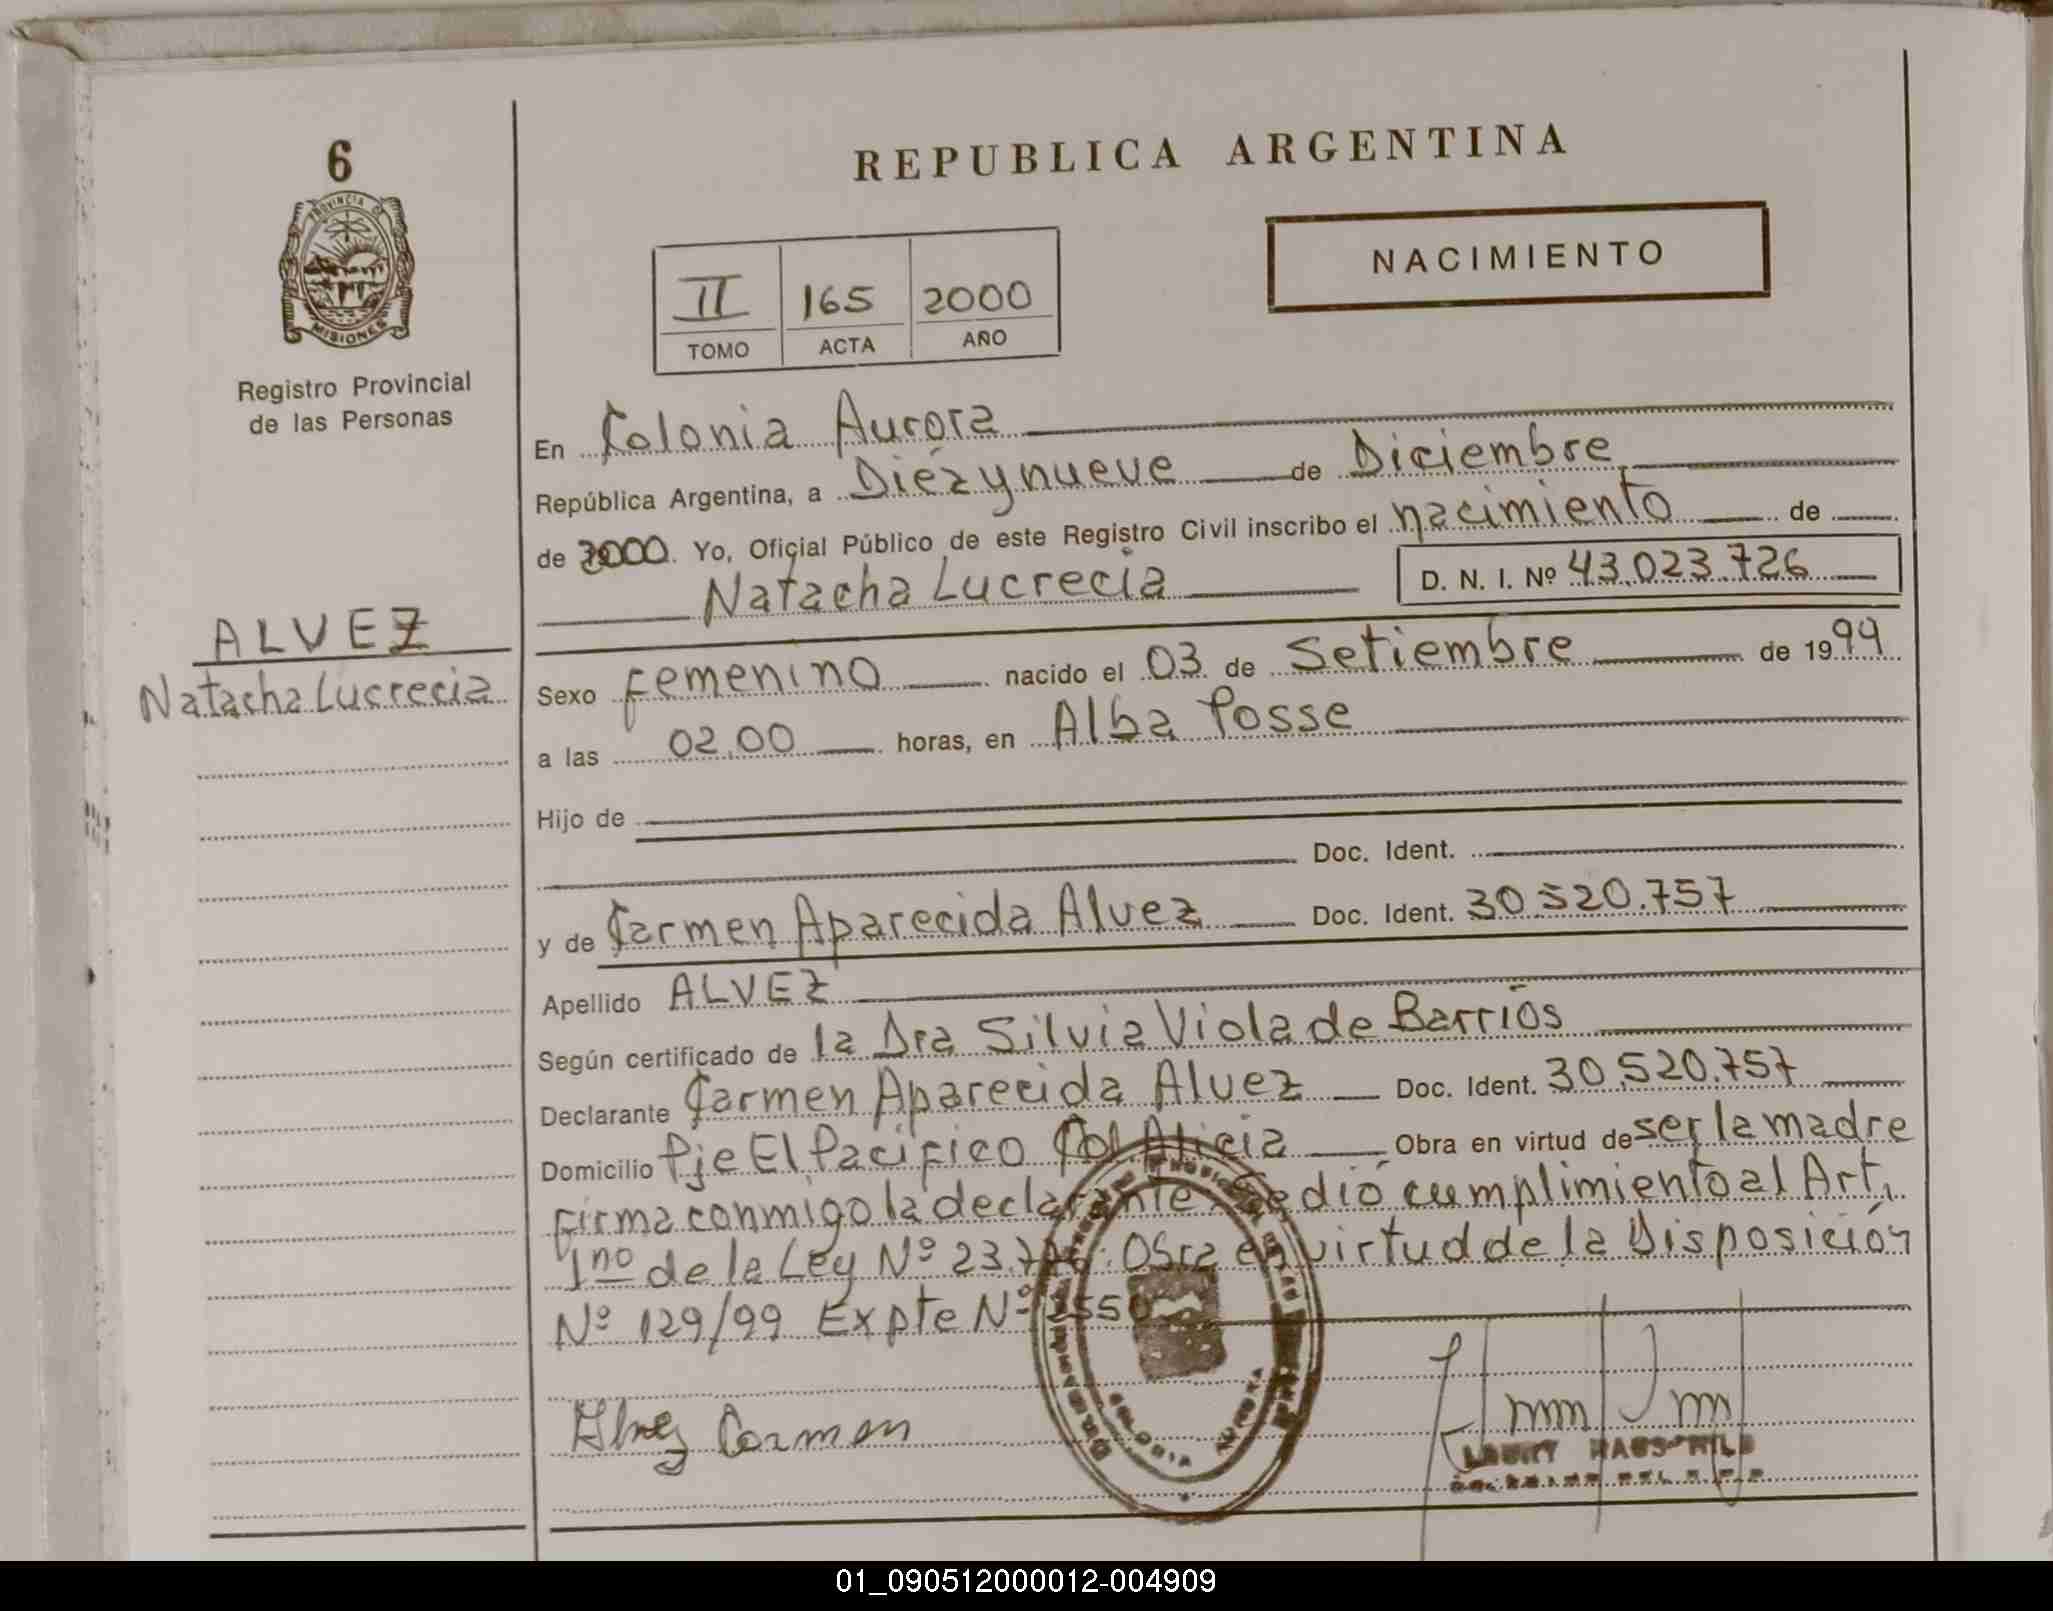 6
PROVINCIA DE
MISIONES
Registro Provincial
de las Personas
ALVEZ
Natacha Lucrecia
REPUBLICA ARGENTINA
NACIMIENTO
II 165 2000
TOMO ACTA AÑO
En Colonia Aurora
República Argentina, a Diézynueve de Diciembre
de 2000. Yo, Oficial Público de este Registro Civil inscribo el nacimiento de
Natacha Lucrecia D. N. I. Nº 43.023.726
Sexo Femenino nacido el 03 de Setiembre de 1994
a las 02,00 horas, en Alba Posse
Hijo de
Doc. Ident.
y de Carmen Aparecida Alvez Doc. Ident. 30.520.757
Apellido ALVEZ
Según certificado de la Dra Silvia Viola de Barrios
Declarante Carmen Aparecida Alvez Doc. Ident. 30.520.757
Domicilio Pje El Pacífico Col Alicia Obra en virtud de ser la madre
firma conmigo la declarante. Se dió cumplimiento al Art,
1no de la Ley Nº 23. Obra en virtud de la Disposición
Nº 129/99 Expte Nº
Alvez Carmen
COLONIA AURORA
01_090512000012-004909